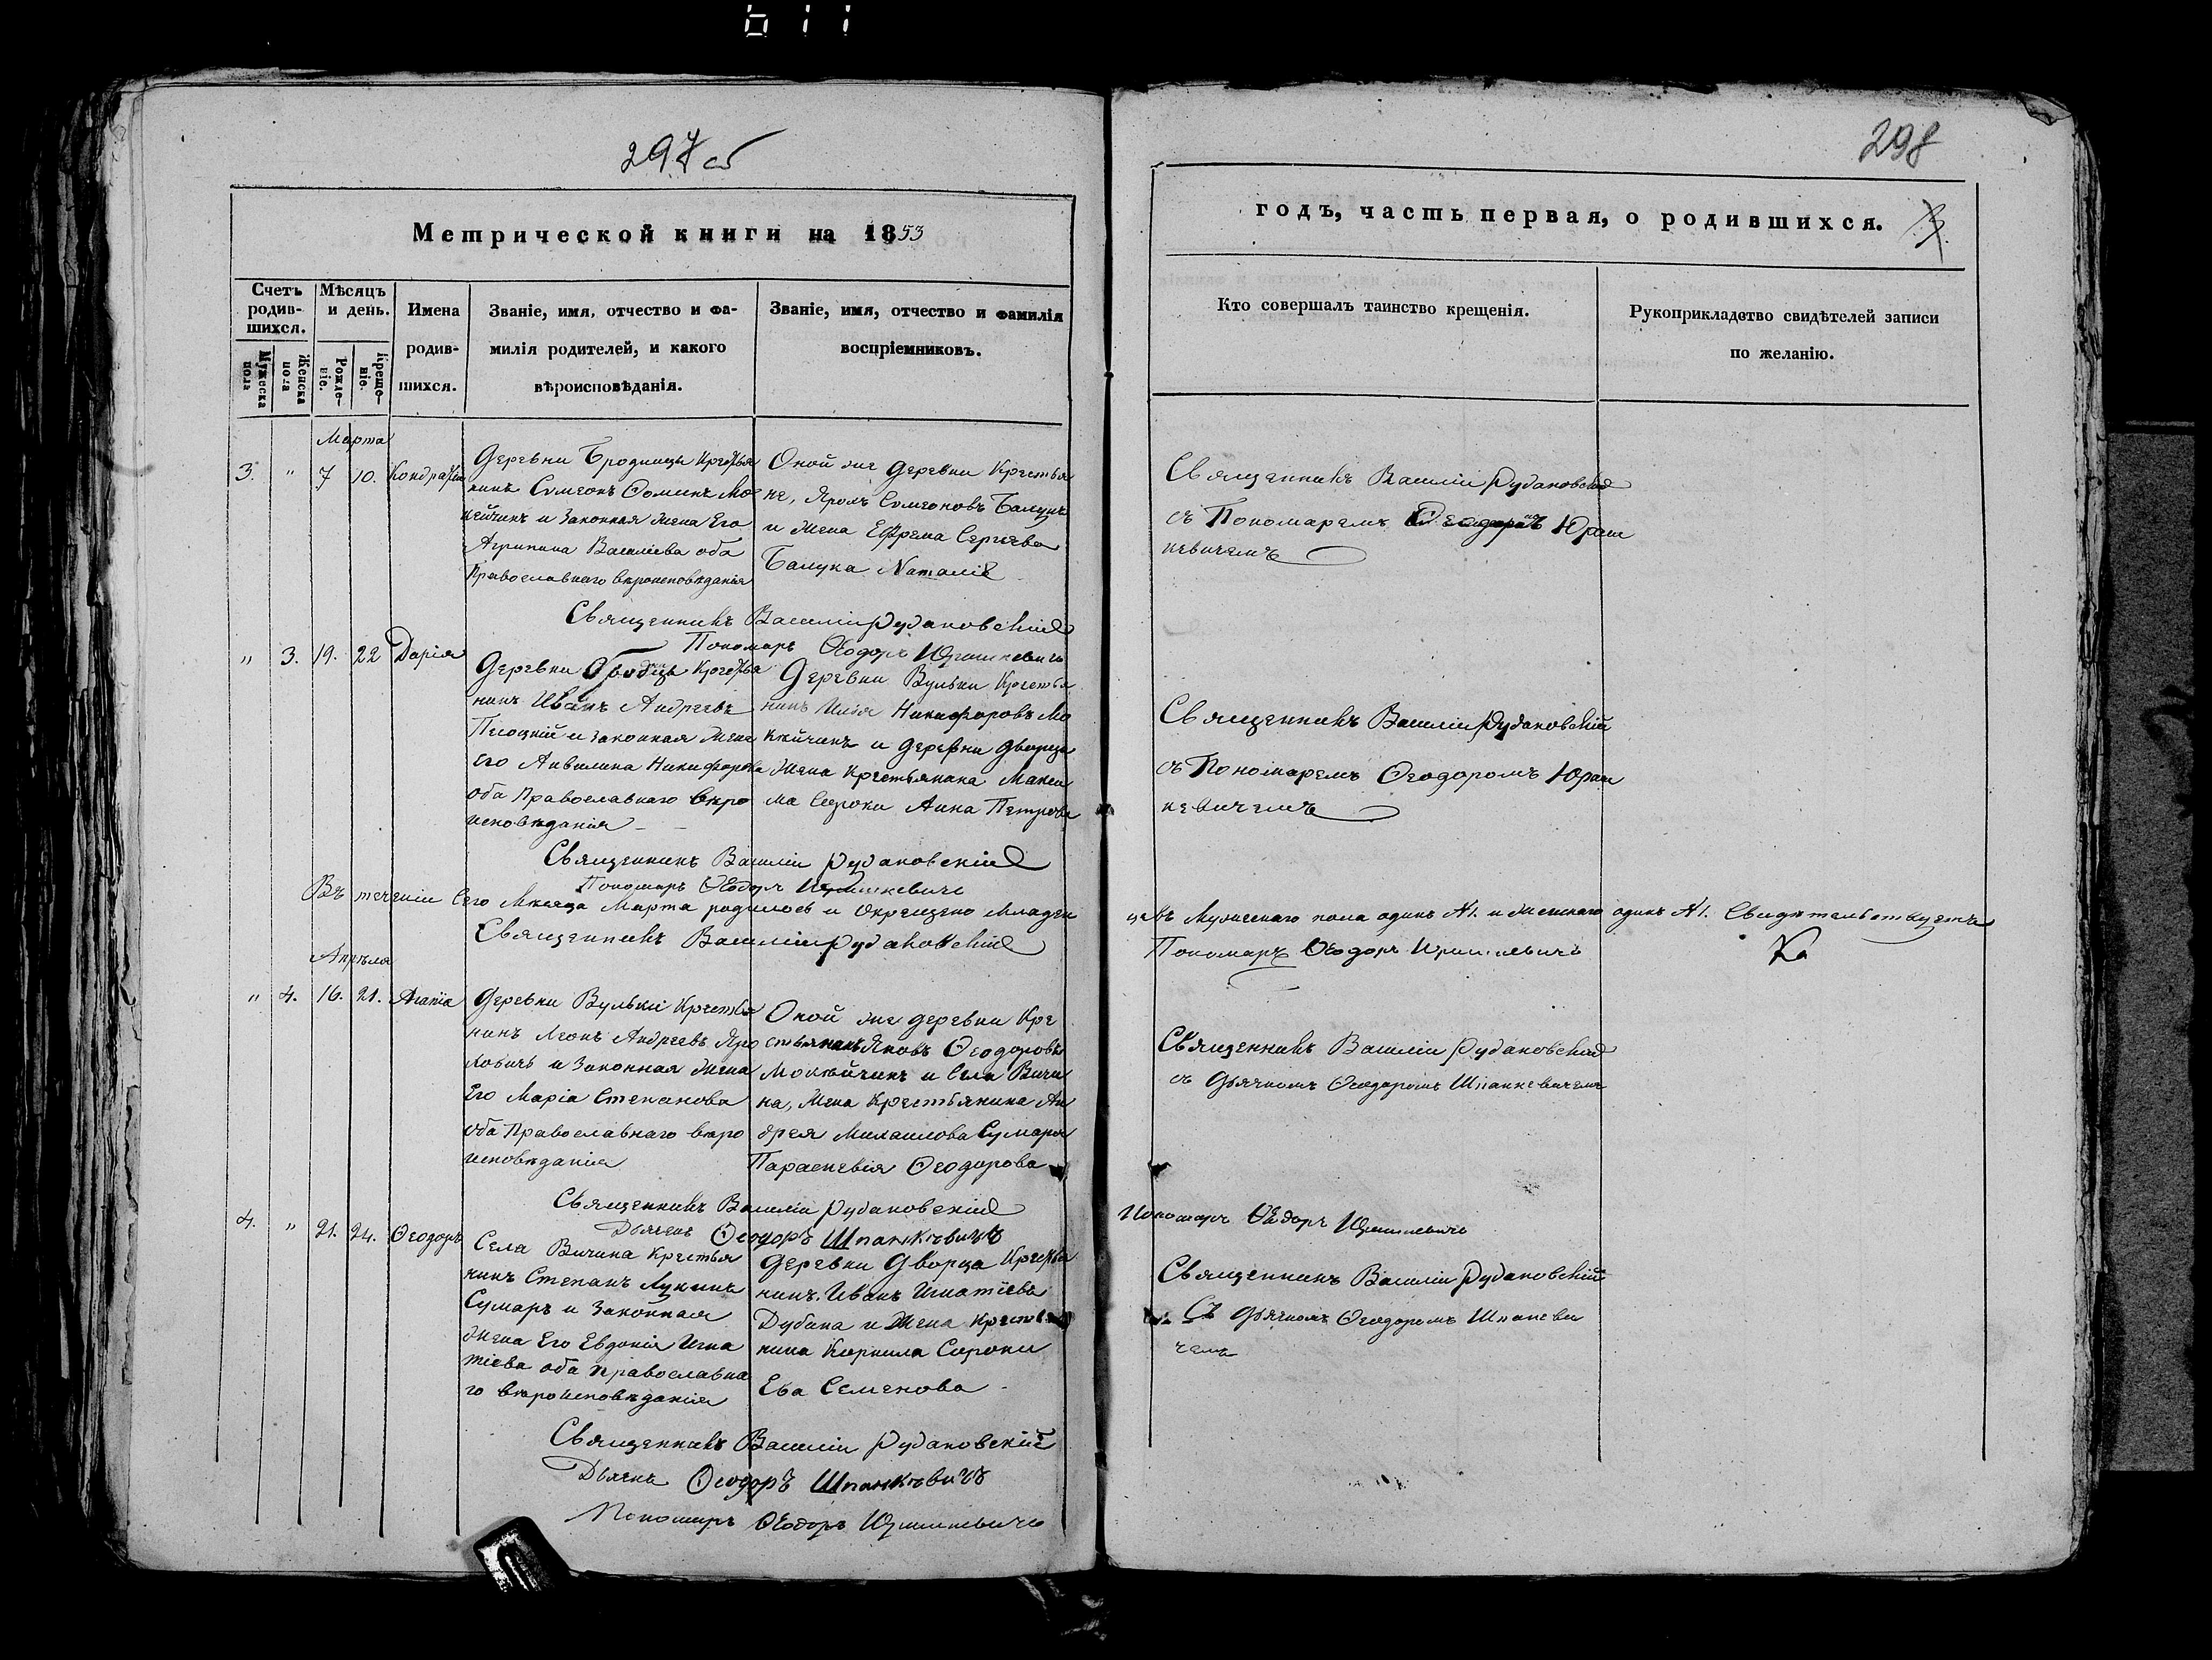 611
297 об
298
Метрической книги на 1853
годъ, часть первая, о родившихся.
3.
Счетъ родив-шихся.
Мѣсяцъ и день.
Имена родив-шихся.
Званіе, имя, отчество и фа-милія родителей, и какого вѣроисповѣданія.
Званіе, имя, отчество и фамилія воспріемниковъ.
Кто совершалъ таинство крещенія.
Рукоприкладство свидѣтелей записи по желанію.
Мужеска пола
Женска пола
Рожде-ніе.
Креще-ніе.
Марта
3. " 7 10. Кондратій
Деревни Бродницы Крестья
нинъ Сѵмеонъ Ѳоминъ Мо
кейчикъ и Законная жена Его
Агрипина Василіева оба
Православнаго вѣроисповѣданія
Оной же деревни Крестья
не, Яромъ Сѵмеоновъ
и жена Ефрема Сергѣева
Наталія
Священникъ Василій Рудаковскій
съ Пономаремъ Юраш
кевичемъ
Священникъ Василій Рудаковскій
Пономарь Ѳеодоръ Юрашкевичъ
" 3. 19. 22 Дарія
Деревни Крестья
нинъ Иванъ Андреевъ
и законная жена
Его Акилина Никифорова
оба Православнаго вѣро
исповѣданія
Деревни Вульки Крестья
нинъ Илія Никифоровъ Мо
кѣйчикъ и деревни Дворца
жена крестьянина Макси
ма Сороки Анна Петрова
Священникъ Василій Рудаковскій
съ Пономаремъ Ѳеодоромъ Юраш
кевичемъ
Священникъ Василій Рудаковскій
Пономарь Ѳеодоръ Юрашкевичъ
Въ теченіи Сего Мѣсяца Марта родилось и Окрещено Младен
цевъ Мужескаго пола одинъ №1. и женскаго одинъ №1. Свидѣтельствуетъ
Священникъ Василій Рудаковскій
Пономарь Ѳеодоръ Юрашкевичъ
Апрѣля
" 4. 16. 21. Агапія
Деревни Вульки Крестья
нинъ Леонъ Андреевъ Яро
ховичъ и Законная жена
Его Марія Степанова
оба Православнаго вѣро
исповѣданія
Оной же деревни Кре
стьянинъ Яковъ Ѳеодоровъ
Мокѣйчикъ и Села Вичи
на, жена Крестьянина Ан
дрея Михаилова Сумара
Параскевія Ѳеодорова
Священникъ Василій Рудаковскій
съ Дьячкомъ Ѳеодоромъ Шпанкевичемъ
Священникъ Василій Рудаковскій
Дьячекъ Ѳеодоръ Шпанкѣвичъ
Пономарь Ѳеодоръ Юрашкевичъ
4. " 21. 24. Ѳеодоръ
Села Вичина Крестья
нинъ Степанъ Лукинъ
Сумаръ и Законная
жена Его Евдокія Игна
тіева оба Православна
го вѣроисповѣданія
Деревни Дворца Крестья
нинъ Иванъ Игнатіевъ
Дубина и жена Крестья
нина Корнила Сороки
Ева Семенова
Священникъ Василій Рудаковскій
Съ Дьячкомъ Ѳеодоромъ Шпанкеви
чемъ
Священникъ Василій Рудаковскій
Дьячекъ Ѳеодоръ Шпанкѣвичъ
Пономарь Ѳеодоръ Юрашкевичъ